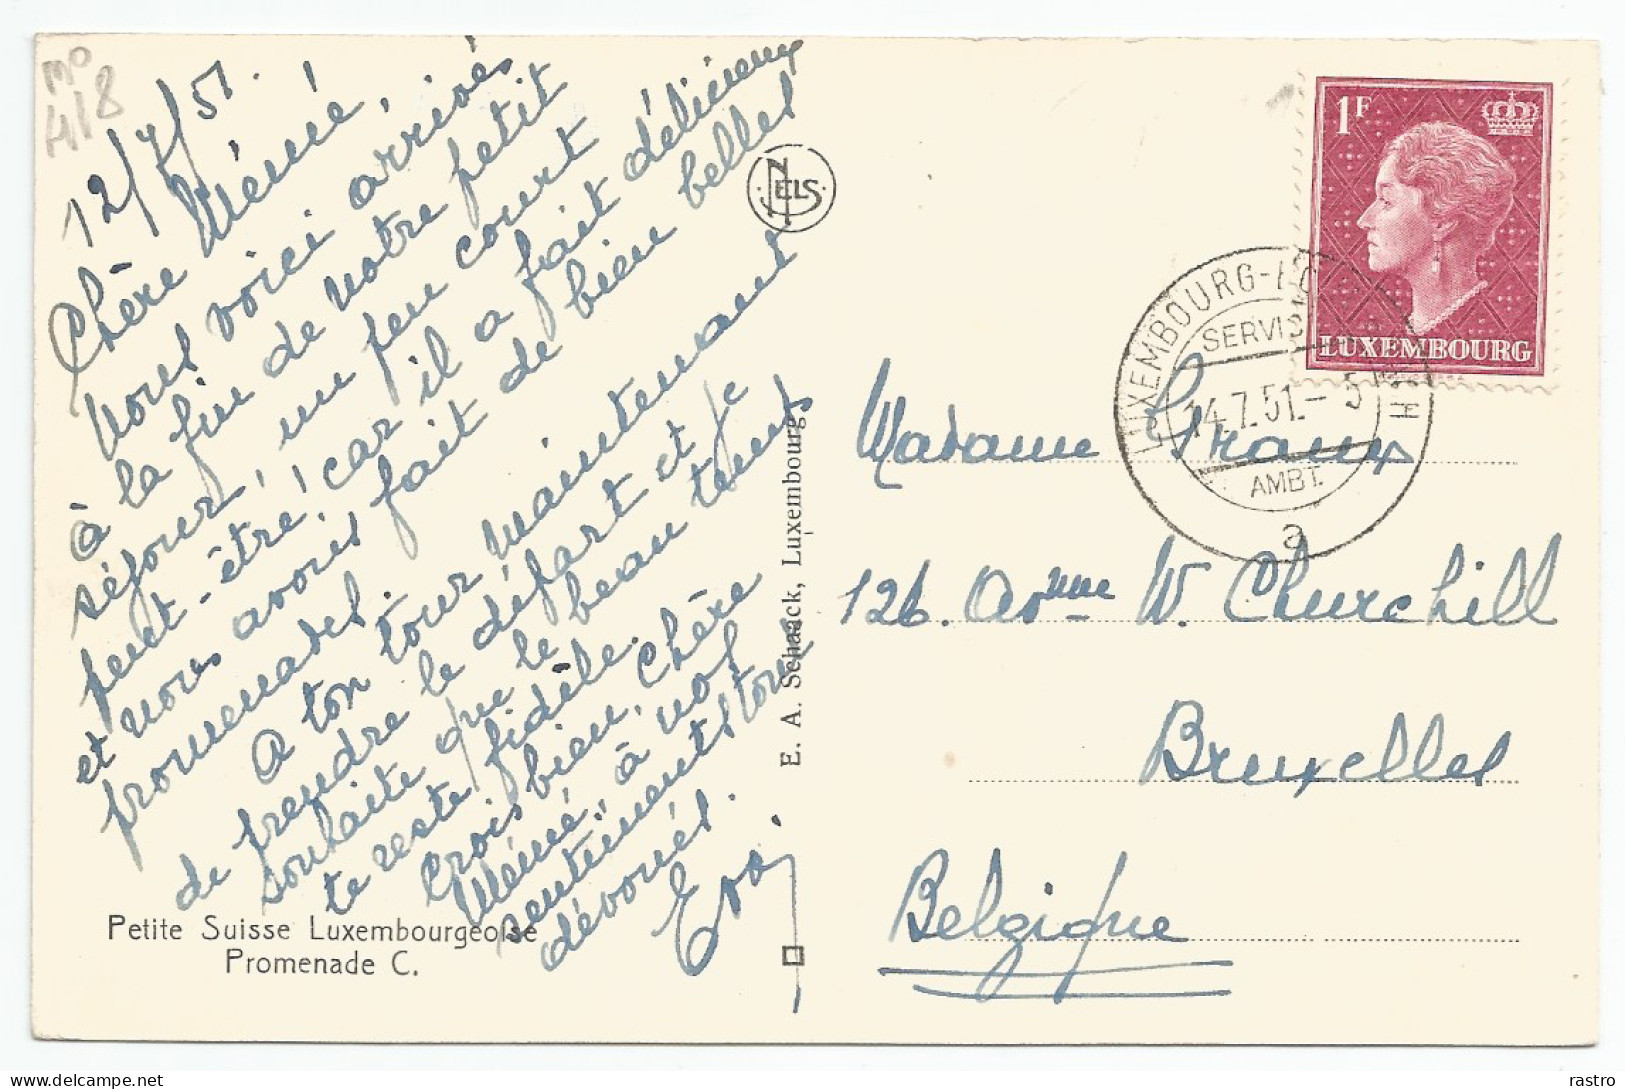 no
418
12/7/51.
Chère Mémé,
Nous voici arrivés
à la fin de notre petit
séjour, un peu court
peut-être, car il a fait délicieux
et nous avons fait de bien belles
promenades.
A ton tour maintenant
de prendre le départ et je
souhaite que le beau temps
te reste fidèle.
Crois bien, chère
Mémé, à nos
sentiments tous
dévoués.
Eva.
Petite Suisse Luxembourgeoise
Promenade C.
NELS
E. A. Schaack, Luxembourg.
1F
LUXEMBOURG
LUXEMBOURG-
SERVIS
14.7.51.- 5
AMBT.
a
Madame Graux
126. Avenue W. Churchill
Bruxelles
Belgique
delcampe.net
rastro